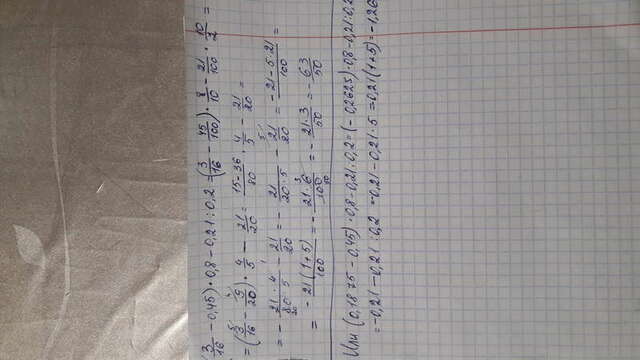 (3/16 - 0,45) · 0,8 - 0,21 : 0,2 = (3/16 - 45/100) · 8/10 - 21/100 · 10/2 =
= (3/16 - 9/20) · 4/5 - 21/20 = 15-36/80 · 4/5 - 21/20 =
= - 21 · 4/80 · 5 - 21/20 = - 21/20 · 5 - 21/20 = - 21 - 5 · 21/100 =
= - 21(1+5)/100 = - 21 · 6/100 = - 21 · 3/50 = - 63/50
Или (0,1875 - 0,45) · 0,8 - 0,21 : 0,2 = (-0,2625) · 0,8 - 0,21 : 0,2
= -0,21 - 0,21 : 0,2 = -0,21 - 0,21 · 5 = 0,21(1+5) = -1,26